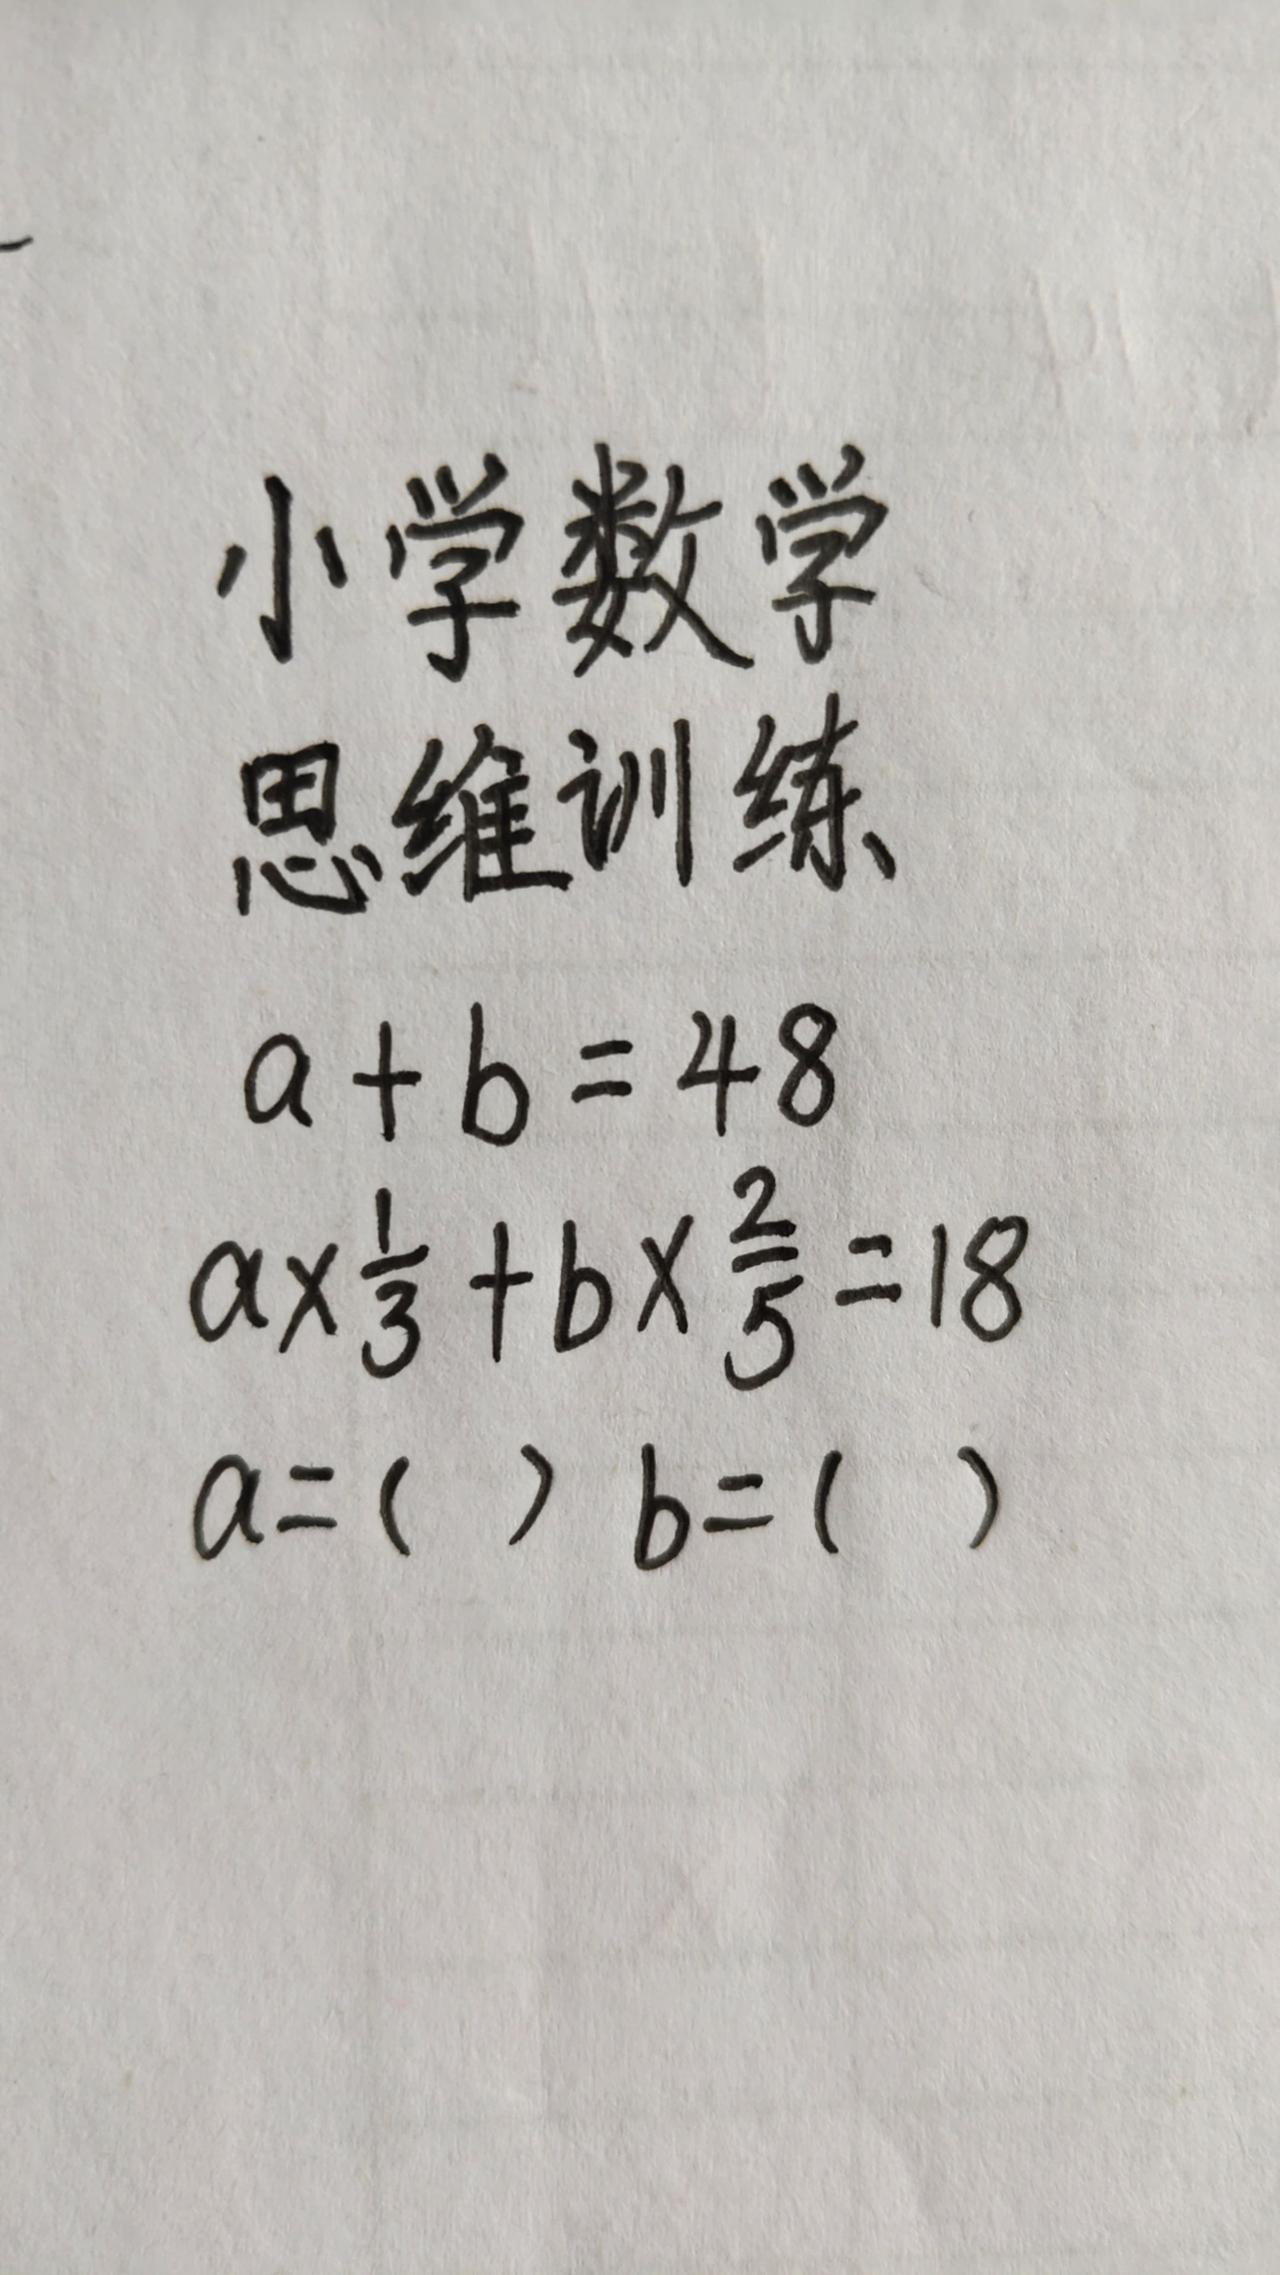 小学数学
思维训练
a+b=48
a×1/3+b×2/5=18
a=( ) b=( )